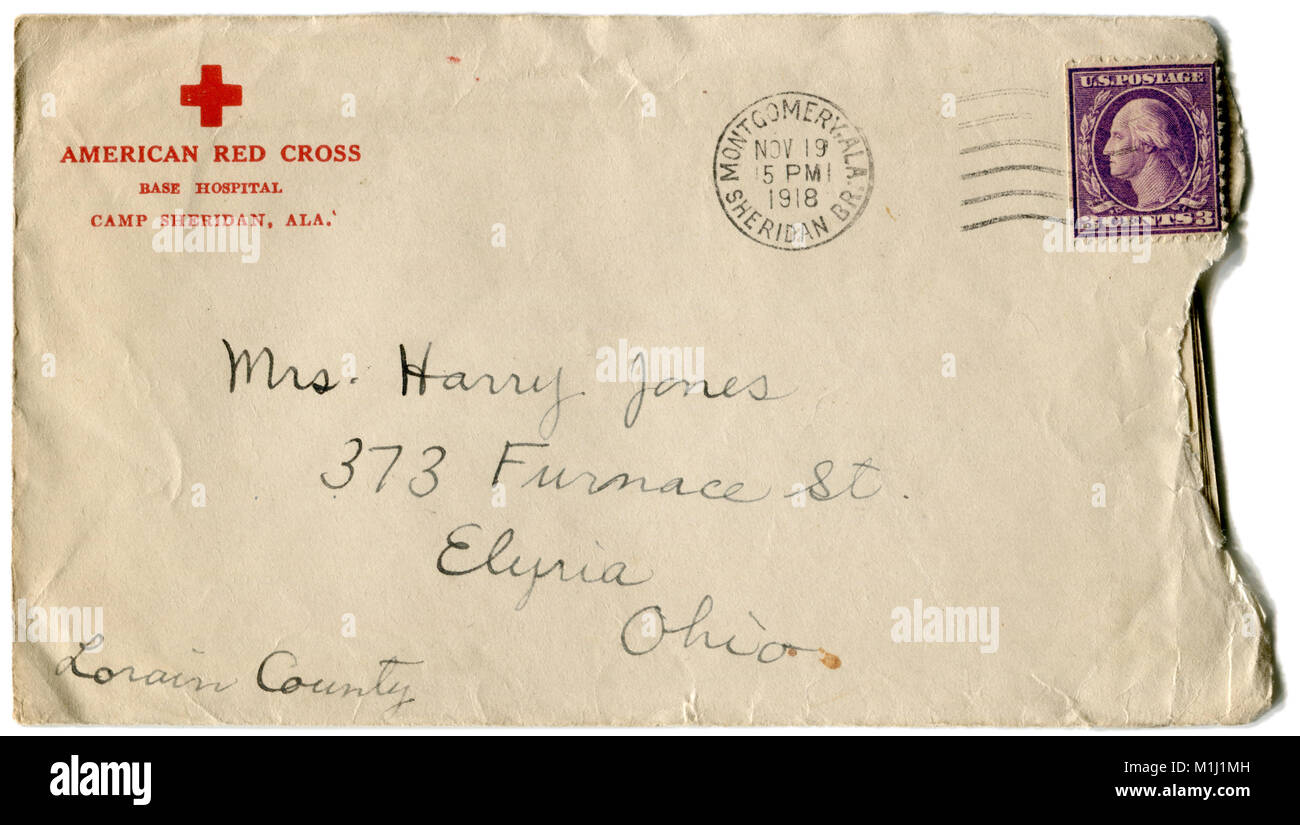 AMERICAN RED CROSS
BASE HOSPITAL
CAMP SHERIDAN, ALA.
MONTGOMERY, ALA.
NOV 19
5 PM
1918
SHERIDAN BR.
U.S. POSTAGE
3 CENTS 3
Mrs. Harry Jones
373 Furnace St.
Elyria
Ohio
Lorain County
alamy
a
alamy stock photo
M1J1MH
www.alamy.com